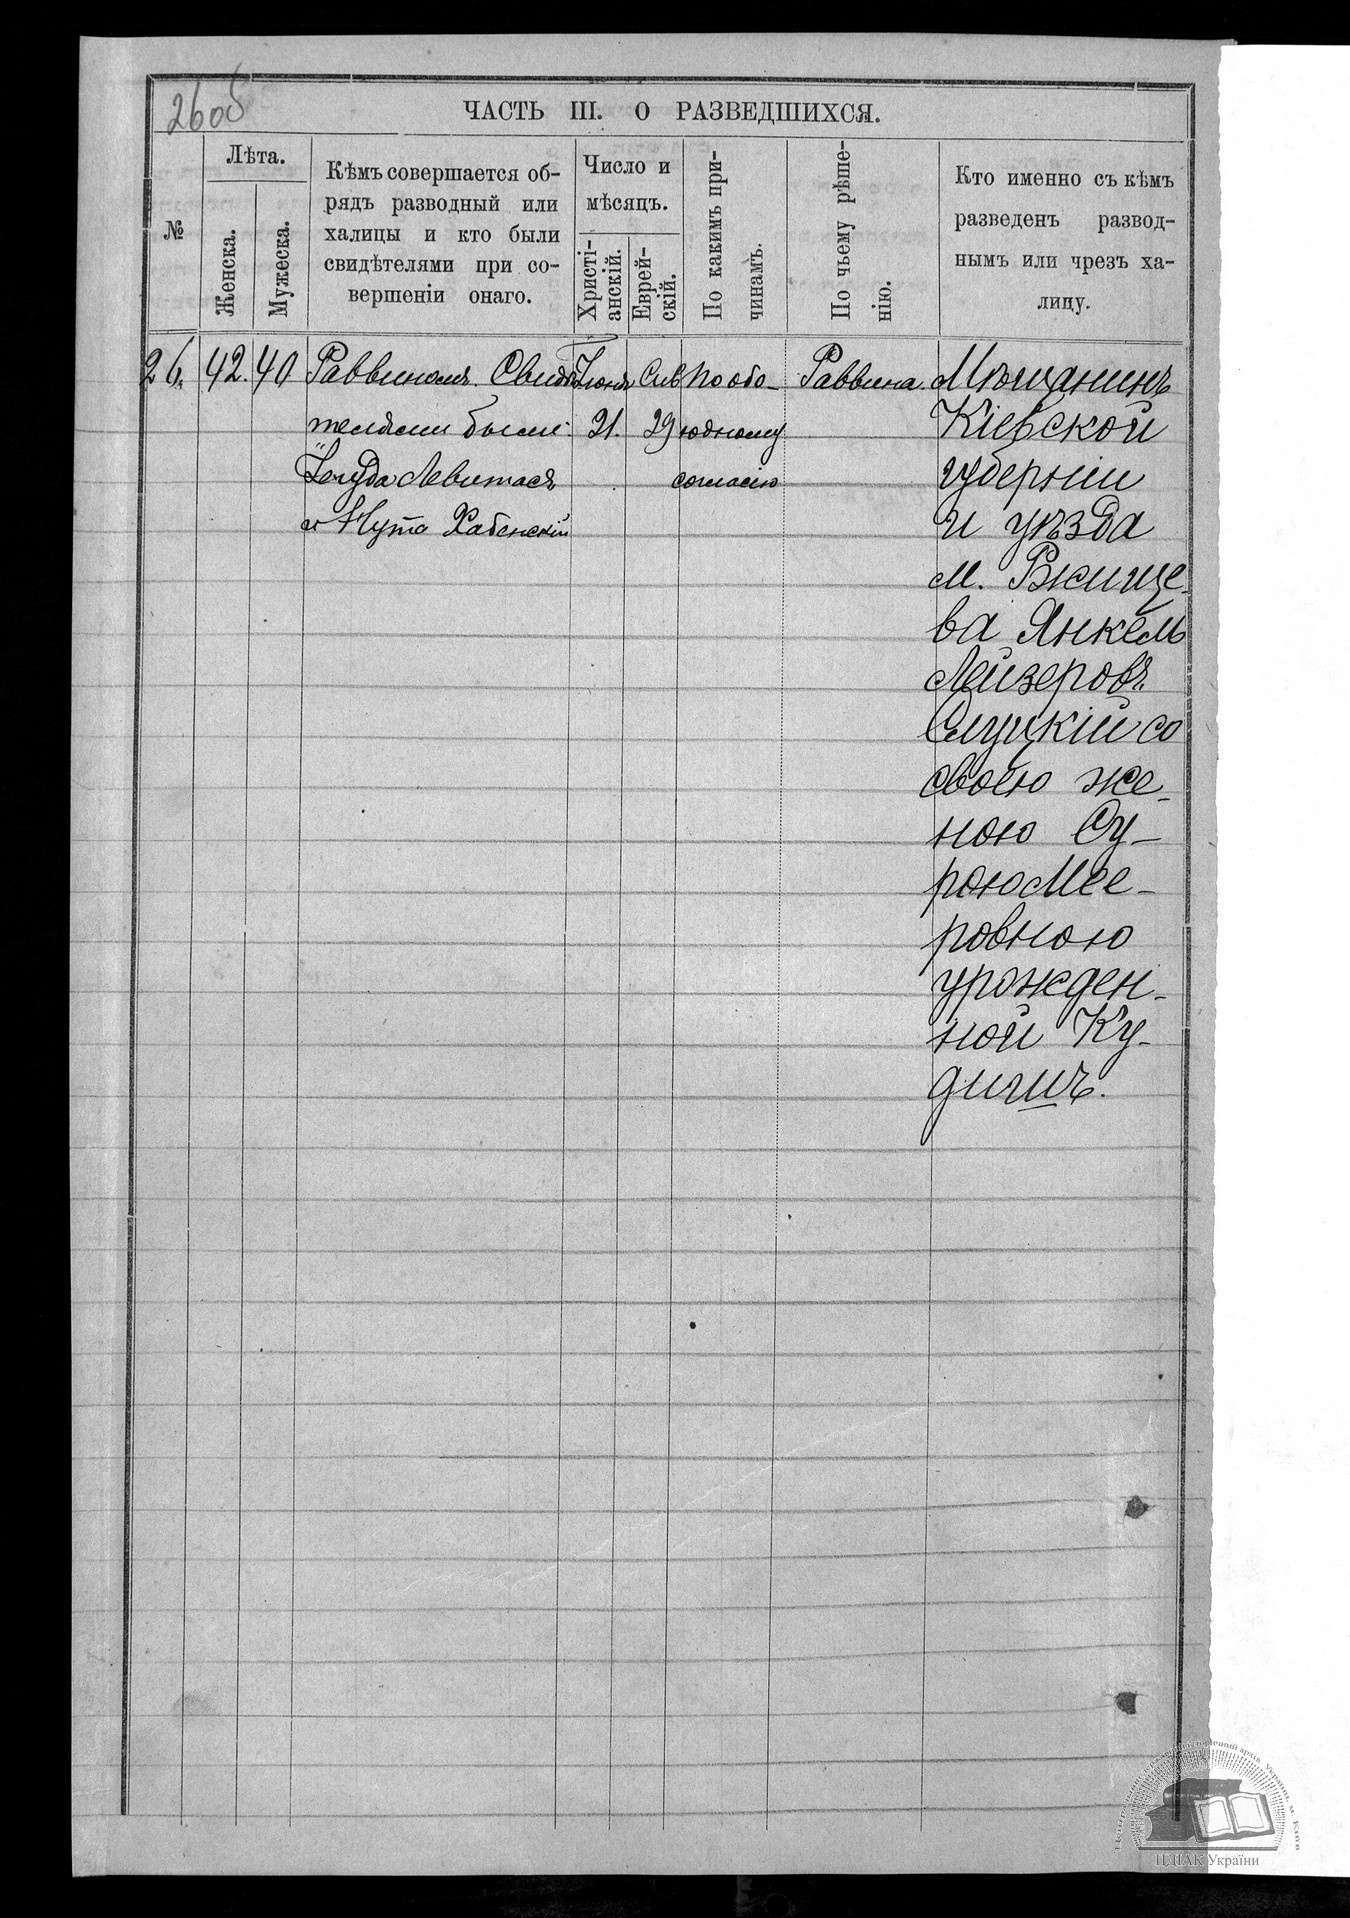 2605
ЧАСТЬ III. О РАЗВЕДШИХСЯ.
№
Лѣта.
Женска.
Мужеска.
Кѣмъ совершается об-
рядъ разводный или
халицы и кто были
свидѣтелями при со-
вершеніи онаго.
Число и
мѣсяцъ.
Христі-
анскій.
Еврей-
скій.
По какимъ при-
чинамъ.
По чьему рѣше-
нію.
Кто именно съ кѣмъ
разведенъ развод-
нымъ или чрезъ ха-
лицу.
26. 42. 40
Раввиномъ. Свидѣ-
телями были:
Іегуда Левитасъ
и Нута Хабенскій
Іюня
21.
Сив
29
По обо-
юдному
согласію
Раввина.
Мѣщанинъ
Кіевской
губерніи
и уѣзда
м. Ржище-
ва Янкель
Лейзеровъ
Слуцкій со
своею же-
ною Су-
рою Мее-
ровною
урожден-
ной Ку-
дишъ.
ЦДІАК України